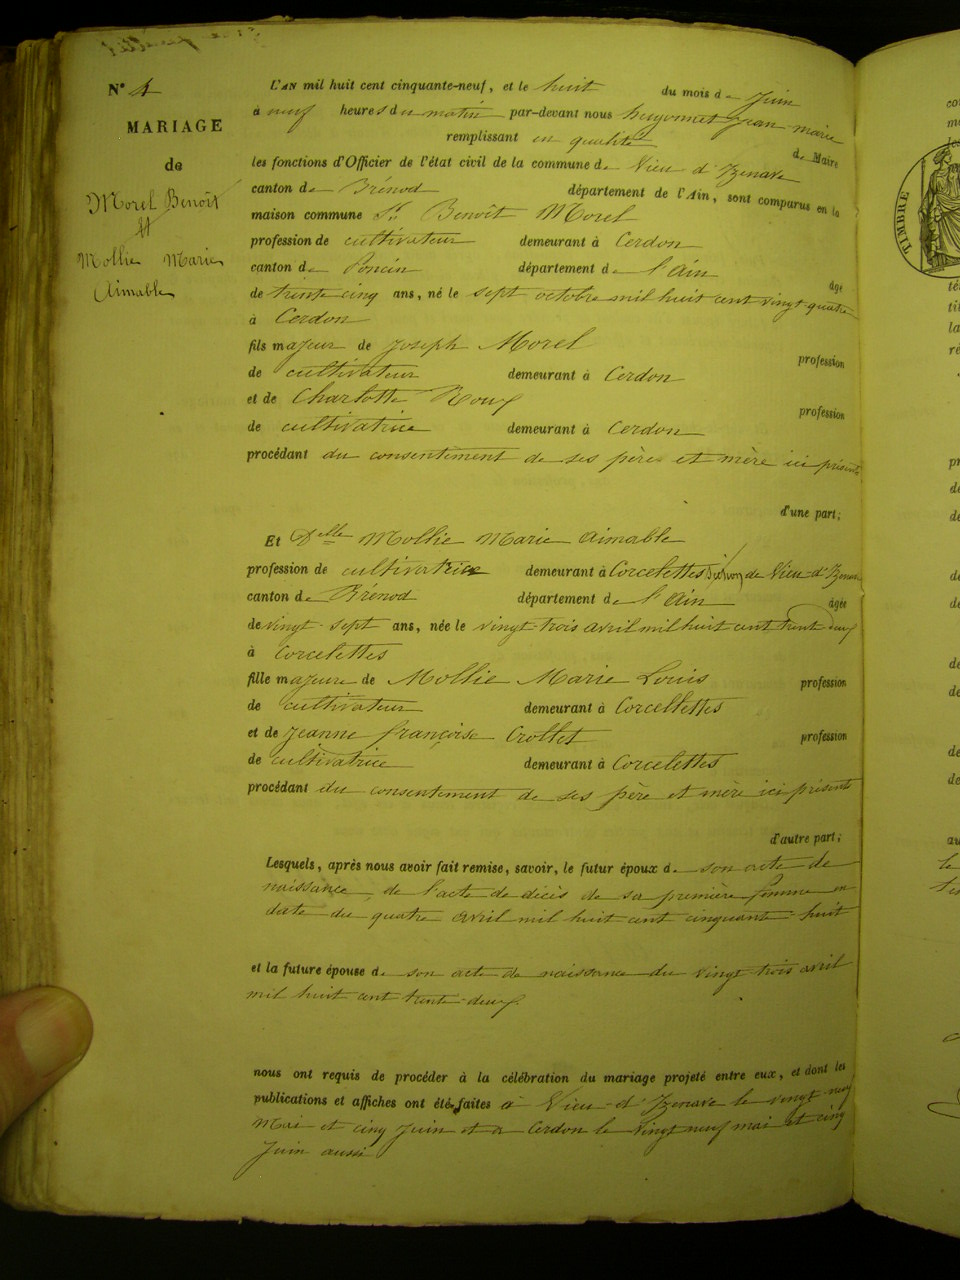 N° 4
MARIAGE
de
Morel Benoît
et
Mollie Marie
Aimable
L'AN mil huit cent cinquante-neuf, et le huit du mois de Juin
à neuf heures du matin par-devant nous Jean marie
remplissant en qualité de Maire
les fonctions d'Officier de l'état civil de la commune de Vieu d'Izenave
canton de Brénod département de l'Ain, sont comparus en la
maison commune Sr Benoît Morel
profession de cultivateur demeurant à Cerdon
canton de Poncin département de l'Ain âgé
de trente cinq ans, né le sept octobre mil huit cent vingt quatre
à Cerdon
fils majeur de Joseph Morel profession
de cultivateur demeurant à Cerdon
et de Charlotte Roux profession
de cultivatrice demeurant à Cerdon
procédant du consentement de ses père et mère ici présents
d'une part;
Et Delle Mollie Marie Aimable
profession de cultivatrice demeurant à Corcelettes de Vieu-d'Izenave
canton de Brénod département de l'Ain âgée
de vingt-sept ans, née le vingt-trois avril mil huit cent trente deux
à Corcelettes
fille majeure de Mollie Marie Louis profession
de cultivateur demeurant à Corcellettes
et de Jeanne françoise Crollet profession
de cultivatrice demeurant à Corcelettes
procédant du consentement de ses père et mère ici présents
d'autre part;
Lesquels, après nous avoir fait remise, savoir, le futur époux de son acte de
naissance, de l'acte de décès de sa première femme en
date du quatre avril mil huit cent cinquante-huit
et la future épouse de son acte de naissance du vingt-trois avril
mil huit cent trente-deux
nous ont requis de procéder à la célébration du mariage projeté entre eux, et dont les
publications et affiches ont été faites à Vieu-d'Izenave le vingt-neuf
Mai et cinq Juin et à Cerdon le vingt neuf mai et cinq
Juin aussi
TIMBRE